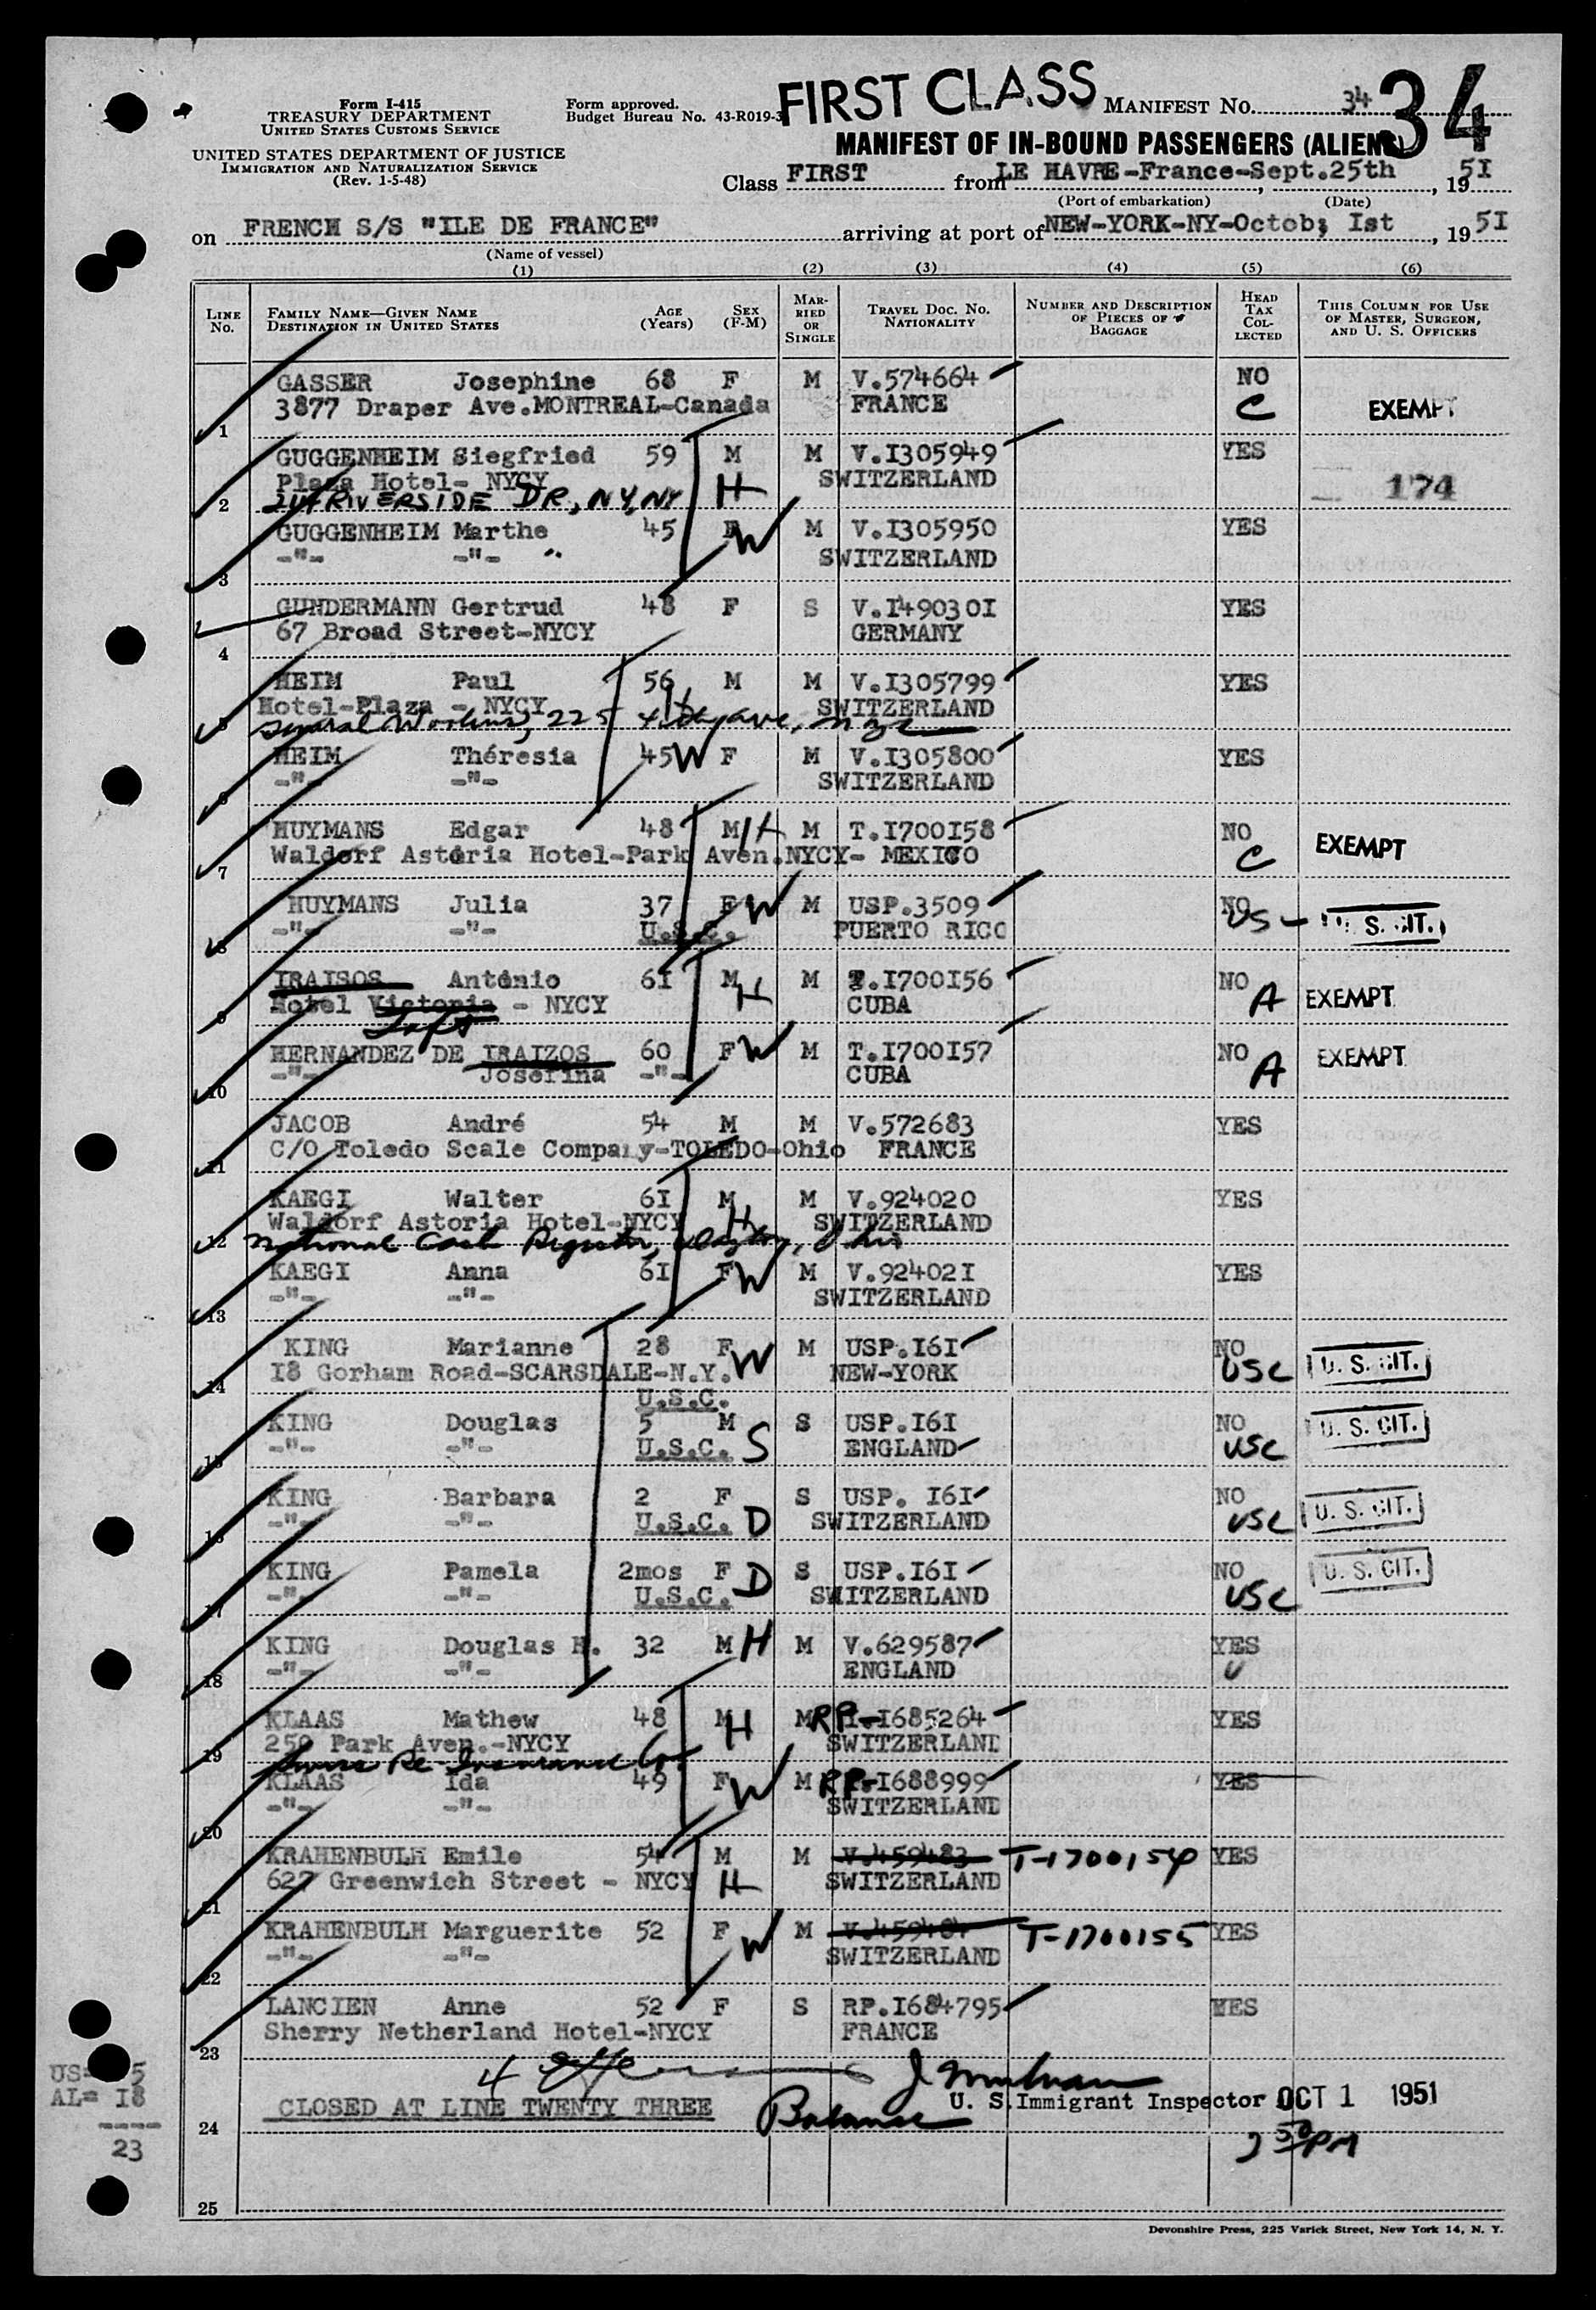 FIRST CLASS
34
Form I-415
TREASURY DEPARTMENT
UNITED STATES CUSTOMS SERVICE
UNITED STATES DEPARTMENT OF JUSTICE
IMMIGRATION AND NATURALIZATION SERVICE
(Rev. 1-5-48)
Form approved.
Budget Bureau No. 43-R019-3
MANIFEST NO. 34
MANIFEST OF IN-BOUND PASSENGERS (ALIENS)
Class FIRST from LE HAVRE-France-Sept.25th, 19 5I
(Port of embarkation) (Date)
on FRENCH S/S "ILE DE FRANCE" arriving at port of NEW-YORK-NY-Octob; Ist, 19 5I
(Name of vessel)
(1) (2) (3) (4) (5) (6)
LINE No.
FAMILY NAME—GIVEN NAME
DESTINATION IN UNITED STATES
AGE (Years)
SEX (F-M)
MARRIED OR SINGLE
TRAVEL DOC. NO.
NATIONALITY
NUMBER AND DESCRIPTION OF PIECES OF BAGGAGE
HEAD TAX COLLECTED
THIS COLUMN FOR USE OF MASTER, SURGEON, AND U. S. OFFICERS
GASSER Josephine 68 F M V.574664 NO
1 3877 Draper Ave.MONTREAL-Canada FRANCE C EXEMPT
GUGGENHEIM Siegfried 59 M M V.I305949 YES
Plaza Hotel- NYCY SWITZERLAND 174
2 RIVERSIDE DR, NY, NY H
GUGGENHEIM Marthe 45 F W M V.I305950 YES
3 -"- -"- " SWITZERLAND
GUNDERMANN Gertrud 48 F S V.I490301 YES
4 67 Broad Street-NYCY GERMANY
HEIM Paul 56 M M V.I305799 YES
Hotel-Plaza - NYCY H SWITZERLAND
5 225 4th Ave, NYC
HEIM Théresia 45 W F M V.I305800 YES
6 -"- -"- SWITZERLAND
HUYMANS Edgar 48 M H M T.I700I58 NO
7 Waldorf Astoria Hotel-Park Aven.NYCY- MEXICO C EXEMPT
HUYMANS Julia 37 F W M USP.3509 NO
8 -"- -"- U.S.C. PUERTO RICO US - U. S. CIT.
IRAISOS Antonio 6I M H M T.I700I56 NO
9 Hotel Victoria - NYCY CUBA A EXEMPT
Taft
HERNANDEZ DE IRAIZOS 60 F W M T.I700I57 NO
10 -"- Josefina -"- CUBA A EXEMPT
JACOB André 54 M M V.572683 YES
11 C/O Toledo Scale Company-TOLEDO-Ohio FRANCE
KAEGI Walter 6I M H M V.924020 YES
Waldorf Astoria Hotel-NYCY SWITZERLAND
12 National Cash Register, Dayton, Ohio
KAEGI Anna 6I F W M V.92402I YES
13 -"- -"- SWITZERLAND
KING Marianne 28 F W M USP.I6I NO
14 I8 Gorham Road-SCARSDALE-N.Y. NEW-YORK USC U. S. CIT.
U.S.C.
KING Douglas 5 M S USP.I6I NO
15 -"- -"- U.S.C. S ENGLAND USC U. S. CIT.
KING Barbara 2 F S USP. I6I NO
16 -"- -"- U.S.C. D SWITZERLAND USC U. S. CIT.
KING Pamela 2mos F D S USP.I6I NO
17 -"- -"- U.S.C. SWITZERLAND USC U. S. CIT.
KING Douglas H. 32 M H M V.629587 YES
18 -"- -"- ENGLAND U
KLAAS Mathew 48 M H M RP-I685264 YES
250 Park Aven.-NYCY SWITZERLAND
19 Swiss Re-Insurance Co.
KLAAS Ida 49 F W M RP-I688999 YES
20 -"- -"- SWITZERLAND
KRAHENBULH Emile 54 M M V.459483 T-1700154 YES
21 627 Greenwich Street - NYCY H SWITZERLAND
KRAHENBULH Marguerite 52 F W M V.459484 T-1700155 YES
22 -"- -"- SWITZERLAND
LANCIEN Anne 52 F S RP.I684795 YES
23 Sherry Netherland Hotel-NYCY FRANCE
US= 5
AL= I8
----
23
4
24 CLOSED AT LINE TWENTY THREE
Balance
U. S.Immigrant Inspector OCT 1 1951
2 30 PM
25
Devonshire Press, 225 Varick Street, New York 14, N. Y.